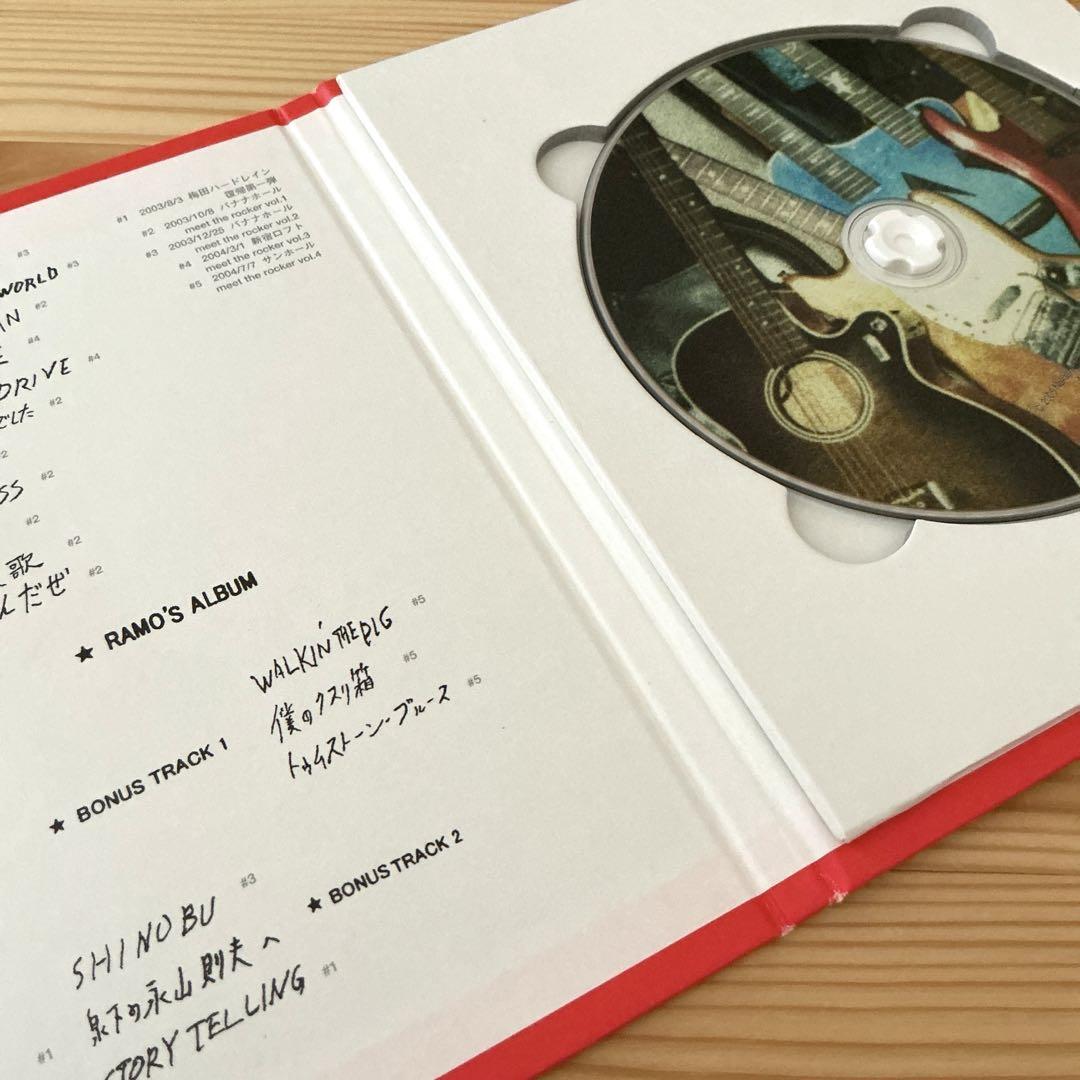 #1 2003/8/3 梅田ハードレイン
復帰第一弾
#2 2003/10/8 バナナホール
meet the rocker vol.1
#3 2003/12/25 バナナホール
meet the rocker vol.2
#4 2004/3/1 新宿ロフト
meet the rocker vol.3
#5 2004/7/7 サンホール
meet the rocker vol.4
#3
WORLD #3
#2
#4
DRIVE #4
でした #2
SS #2
#2
歌 #2
んだぜ #2
★ RAMO'S ALBUM
WALKIN' THE PIG #5
僕のクスリ箱 #5
トゥイストーン・ブルース #5
★ BONUS TRACK 1
★ BONUS TRACK 2
SHINOBU #3
泉下の永山則夫へ
STORY TELLING #1
#1